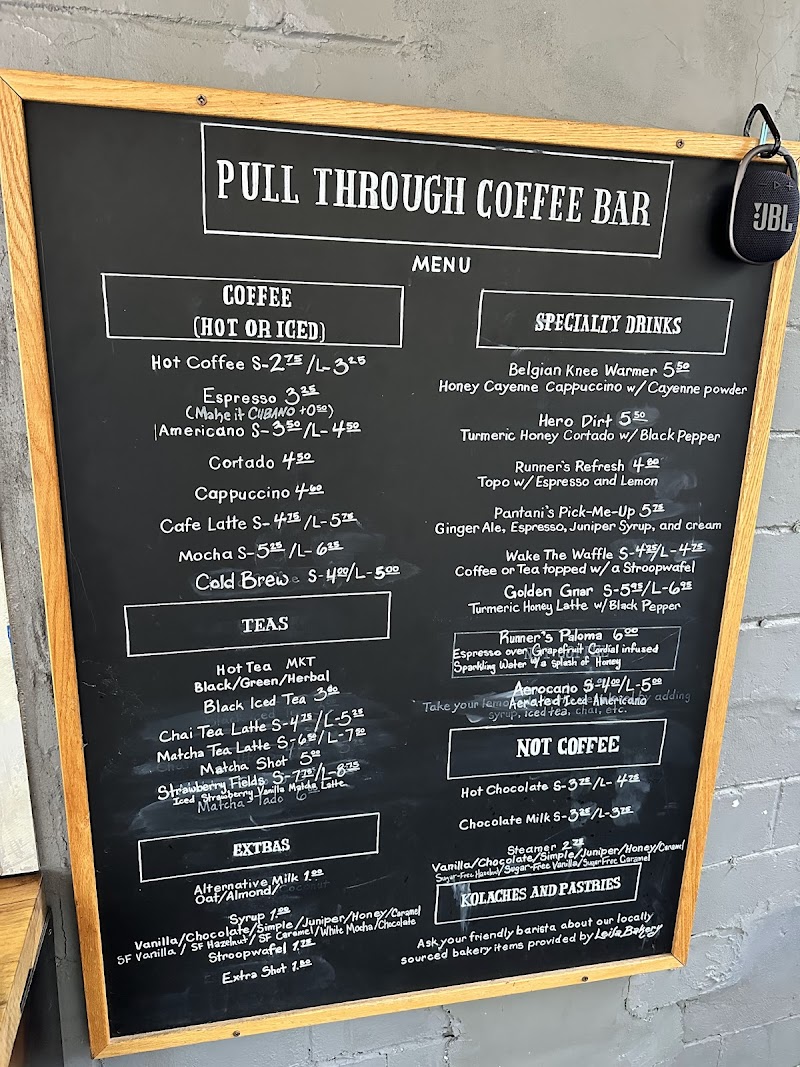 PULL THROUGH COFFEE BAR
JBL
MENU
COFFEE
(HOT OR ICED)
Hot Coffee S-2.75/L-3.25
Espresso 3.25
(Make it CUBANO +0.50)
Americano S-3.50/L-4.50
Cortado 4.50
Cappuccino 4.60
Cafe Latte S-4.75/L-5.75
Mocha S-5.25/L-6.25
Cold Brew S-4.00/L-5.00
TEAS
Hot Tea MKT
Black/Green/Herbal
Black Iced Tea
Chai Tea Latte S-4.75/L-5.25
Matcha Tea Latte
Matcha Shot 5.00
Strawberry Fields S-7.75/L-8.75
Iced Strawberry Vanilla Matcha Latte
EXTRAS
Alternative Milk
Oat/Almond/Coconut
Syrup
Vanilla/Chocolate/Simple/Juniper/Honey/Caramel
SF Vanilla/SF Hazelnut/SF Caramel/White Mocha/Chocolate
Stroopwafel
Extra Shot
SPECIALTY DRINKS
Belgian Knee Warmer 5.50
Honey Cayenne Cappuccino w/Cayenne powder
Hero Dirt 5.50
Turmeric Honey Cortado w/Black Pepper
Runner's Refresh 4.80
Topo w/Espresso and Lemon
Pantani's Pick-Me-Up 5.75
Ginger Ale, Espresso, Juniper Syrup, and cream
Wake The Waffle S-4.25/L-4.75
Coffee or Tea topped w/a Stroopwafel
Golden Gnar S-5.95/L-6.95
Turmeric Honey Latte w/Black Pepper
Runner's Paloma 6.00
Espresso over Grapefruit Cordial infused
Sparkling Water w/a splash of Honey
Aerocano S-4.00/L-5.00
Aerated Iced Americano
Take your by adding
syrup, iced tea, chai, etc.
NOT COFFEE
Hot Chocolate S-3.75/L-4.75
Chocolate Milk S-3.25/L-3.75
Steamer 2.75
Vanilla/Chocolate/Simple/Juniper/Honey/Caramel
Sugar-Free Hazelnut/Sugar-Free Vanilla/Sugar Free Caramel
KOLACHES AND PASTRIES
Ask your friendly barista about our locally
sourced bakery items provided by Leila Bakery